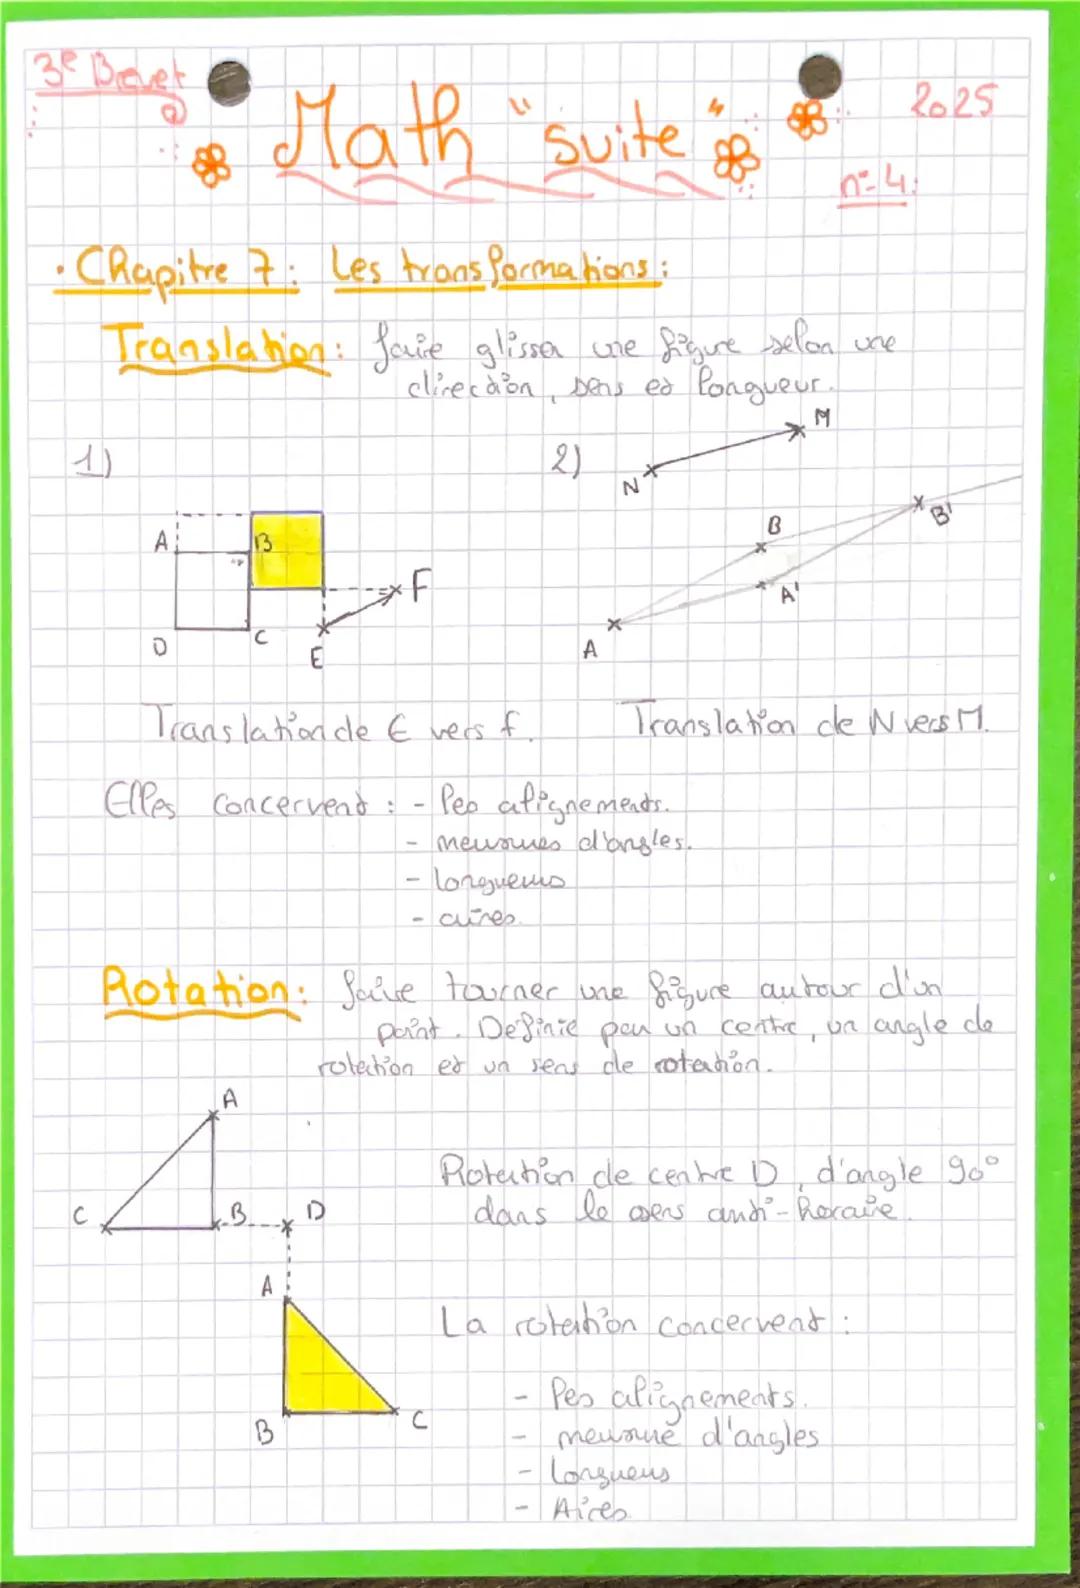 3e Brevet
Math "suite"
2025
n°4:
• Chapitre 7: Les transformations:
Translation: faire glisser une figure selon une
direction, sens et longueur.
1)
2)
M
N
A
B
B
B'
F
A'
D
C
E
A
Translation de E vers f.
Translation de N vers M.
Elles concervent: - les alignements.
- mesures d'angles.
- longueurs
- aires.
Rotation: faire tourner une figure autour d'un
point. Definie par un centre, un angle de
rotation et un sens de rotation.
A
Rotation de centre D, d'angle 90°
dans le sens anti-horaire.
C
B
D
A
La rotation concervent:
- les alignements.
- mesure d'angles
- longueurs
- Aires.
B
C